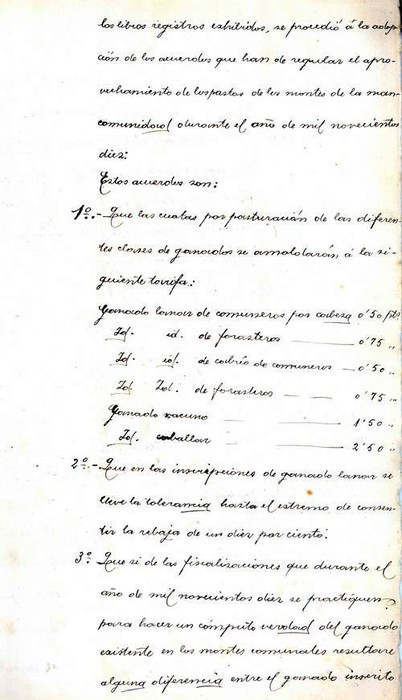 los libros registros exhibidos, se procedió á la adop-
ción de los acuerdos que han de regular el apro-
vechamiento de los pastos de los montes de la man-
comunidad durante el año de mil novecientos
diez:
Estos acuerdos son:
1º.- Que las cuotas por pasturación de las diferen-
tes clases de ganados se amoldarán, á la si-
guiente tarifa:
Ganado lanar de comuneros por cabeza 0'50 pts
Id. id. de forasteros 0'75 "
Id. id. de cabrío de comuneros 0'50 "
Id. Id. de forasteros 0'75 "
Ganado vacuno 1'50 "
Id. caballar 2'50 "
2º.- Que en las inscripciones de ganado lanar se
lleve la tolerancia hasta el extremo de consen-
tir la rebaja de un diez por ciento.
3º. Que si de las fiscalizaciones que durante el
año de mil novecientos diez se practiquen
para hacer un cómputo verdad del ganado
existente en los montes comunales resultare
alguna diferencia entre el ganado inscrito